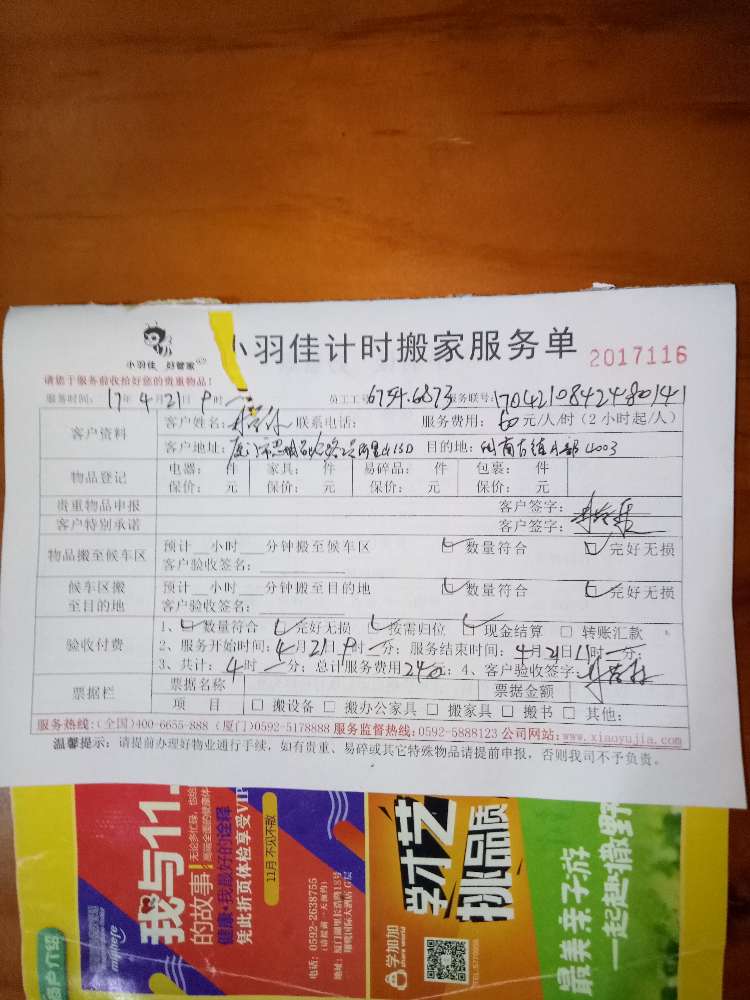 小羽佳 好管家
小羽佳计时搬家服务单 2017116
请您于服务前收拾好您的贵重物品!
服务时间: 17年4月21日9时 员工工号: 6754.6873 服务联号: 17042108424480141
客户资料 客户姓名: 联系电话: 服务费用: 60元/人/时(2小时起/人)
客户地址: 厦门市思明区 目的地: 4003
物品登记 电器: 件 家具: 件 易碎品: 件 包裹: 件
保价: 元 保价: 元 保价: 元 保价: 元
贵重物品申报 客户签字:
客户特别承诺 客户签字:
物品搬至候车区 预计__小时___分钟搬至候车区 数量符合 完好无损
客户验收签名:
候车区搬至目的地 预计__小时___分钟搬至目的地 数量符合 完好无损
客户验收签名:
验收付费 1、数量符合 完好无损 按需归位 现金结算 □ 转账汇款
2、服务开始时间: 4月21日9时 分; 服务结束时间: 4月21日11时 分;
3、共计: 4时 分; 总计服务费用240元; 4、客户验收签字:
票据栏 票据名称 票据金额
项 目 □ 搬设备 □ 搬办公家具 □ 搬家具 □ 搬书 □ 其他:
服务热线:(全国)400-6655-888 (厦门)0592-5178888 服务监督热线:0592-5888123 公司网站:www.xiaoyujia.com
温馨提示: 请提前办理好物业通行手续, 如有贵重、易碎或其它特殊物品请提前申报, 否则我司不予负责。
我与11.
的故事
健康+我最好的诠释
凭此折页体检享受VIP
11月 不见不散
电话: 0592-2638755
(请提前一天预约)
学才艺
挑品质
学加加
最美亲子游
一起趣撒野